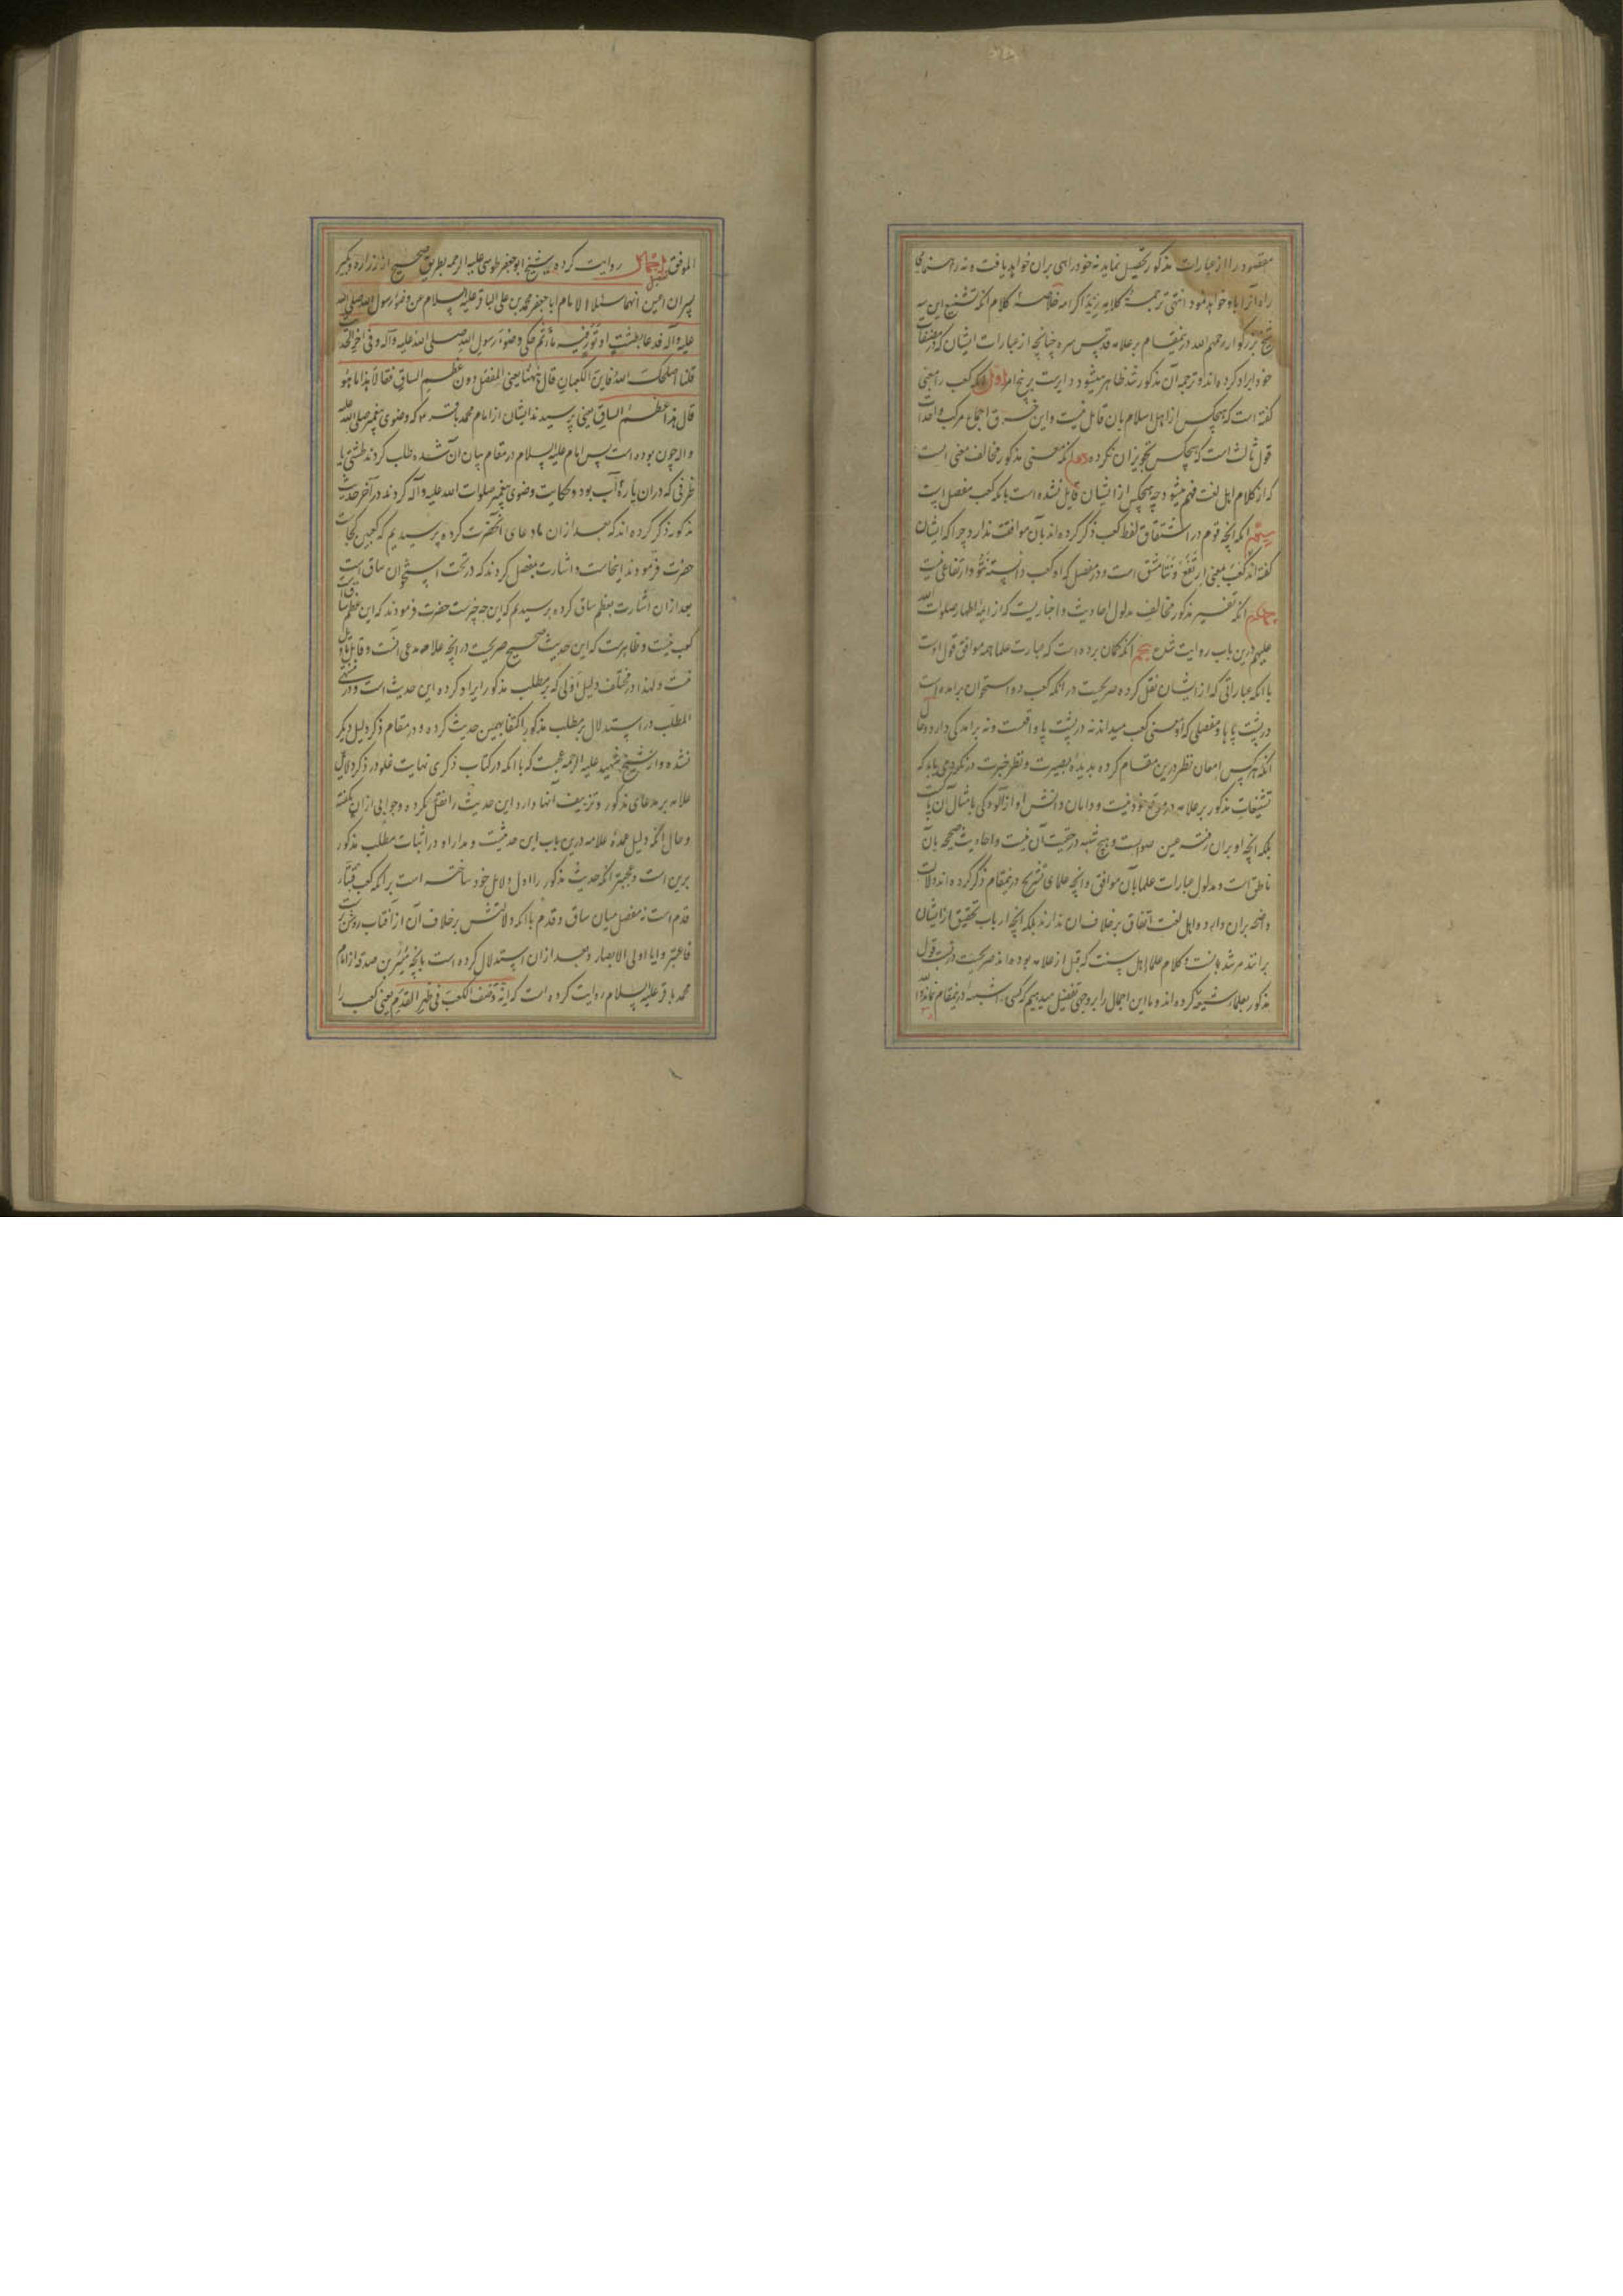 مقصود را از عبارات مذکور تحصیل نماید نه خود راهی بران خواهد یافت و نه راهنمای
راه آنرا باو خواهد نمود انتهی ترجمة کلامه زید اکرامه خلاصهٔ کلام آنکه تشنیع این سه
شیخ بزرگوار رحمهم الله درینمقام بر علامه قدس سره چنانچه از عبارات ایشان که در مصنفات
خود ایراد کرده اند و ترجمه آن مذکور شد ظاهر میشود دایرست بر پنج امر اول آنکه کعب را بمعنی
گفته است که هیچکس از اهل اسلام بان قایل نیست و این خرق اجماع مرکب و احداث
قول ثالث است که هیچکس تجویز آن نکرده دوم آنکه معنی مذکور مخالف معنی است
که از کلام اهل لغت فهم میشود چه هیچکس از ایشان قایل نشده است بانکه کعب مفصل است
سیم آنکه آنچه قوم در اشتقاق لفظ کعب ذکر کرده اند بآن موافقت ندارد چرا که ایشان
گفته اند کعب بمعنی ارتفع و نتا مشتق است و در مفصل که او کعب دانسته نتو و ارتفاعی نیست
چهارم آنکه تفسیر مذکور مخالف مدلول احادیث و اخباریست که از ایمهٔ اطهار صلوات الله
علیهم درین باب روایت شده پنجم آنکه گمان برده است که عبارت علما همه موافق قول اوست
با آنکه عباراتی که از ایشان نقل کرده صریحست در آنکه کعب دو استخوان برامده است
در پشت پاها و مفصلی که او معنی کعب میداند نه در پشت پا واقعست و نه برامدگی دارد و حال
آنکه هر کس امعان نظر درین مقام کرده بدیدهٔ بصیرت و نظر خبرت در نگرد می یابد که
تشنیعات مذکور بر علامه در موقع خود نیست و دامان دانش او از آلودگی بامثال آن پاکست
بلکه آنچه او بران رفته عین صوابست و هیچ شبهه در حقیت آن نیست و احادیث صحیحه بآن
ناطق است و مدلول عبارات علما بآن موافق و آنچه علمای تشریح درینمقام ذکر کرده اند دلالت
واضحه بران دارد و اهل لغت اتفاق بر خلاف آن ندارند بلکه آنچه ارباب تحقیق از ایشان
برانند مرشد بانست و کلام علما اهل سنت که قبل از علامه بوده اند صریحست در نسبت قول
مذکور بعلما شیعه کرده اند و ما این اجمال را بر وجهی تفصیل میدهیم که کسی را شبهه درینمقام نماند والله
الموفق تفصیل اجمال روایت کرده شیخ ابوجعفر طوسی علیه الرحمه بطریق صحیح از زراره و بکیر
پسران اعین انهما سئلا الامام ابا جعفر محمد بن علی الباقر علیه السلام من وضوء رسول الله صلی الله
علیه و آله فدعا بطشت او تور فیه ماء ثم حکی وضوء رسول الله صلی الله علیه و آله و فی آخر الحدیث
قلنا اصلحک الله فاین الکعبان قال ههنا یعنی المفصل دون عظم الساق فقالا هذا ما هو
قال هذا عظم الساق یعنی پرسیدند ایشان از امام محمد باقر ع که وضوی پیغمبر صلی الله علیه
و آله چون بوده است پس امام علیه السلام در مقام بیان آن شده طلب کردند طشتی یا
ظرفی که در ان پارهٔ آب بود و حکایت وضوی پیغمبر صلوات الله علیه و آله کردند در آخر حدیث
مذکور ذکر کرده اند که بعد از ان ما دعای آنحضرت کرده پرسیدیم که کعبین کجاست
حضرت فرمودند اینجاست و اشارت بمفصل کردند که در تحت استخوان ساق است
بعد از ان اشارت بعظم ساق کرده پرسیدیم که این چه چیزست حضرت فرمودند که این عظم ساقست
کعب نیست و ظاهرست که این حدیث صحیح صریحست در آنچه علامه مدعی آنست و قابل تاویل
نیست و لهذا در مختلف دلیل اولی که بر مطلب مذکور ایراد کرده این حدیث است و در منتهی
المطلب در استدلال بر مطلب مذکور اکتفا بهمین حدیث کرده و در مقام ذکر دلیل دیگر
نشده و از شیخ شهید علیه الرحمه عجبست که با آنکه در کتاب ذکری نهایت غلو در ذکر دلایل
علامه بر مدعای مذکور و تزییف آنها دارد این حدیث را نقل نکرده و جوابی از ان نگفته
و حال آنکه دلیل عمدهٔ علامه درین باب این حدیثست و مدار او در اثبات مطلب مذکور
برین است و عجبتر آنکه حدیث مذکور را اول دلایل خود ساخته است بر آنکه کعب قبتان
قدم است نه مفصل میان ساق و قدم با آنکه دلالتش بر خلاف آن از آفتاب روشن ترست
فاعتبروا یا اولی الابصار و بعد از ان استدلال کرده است بانچه میسر بن صدقه از امام
محمد باقر علیه السلام روایت کرده است که انه وصف الکعب فی ظهر القدم یعنی کعب را